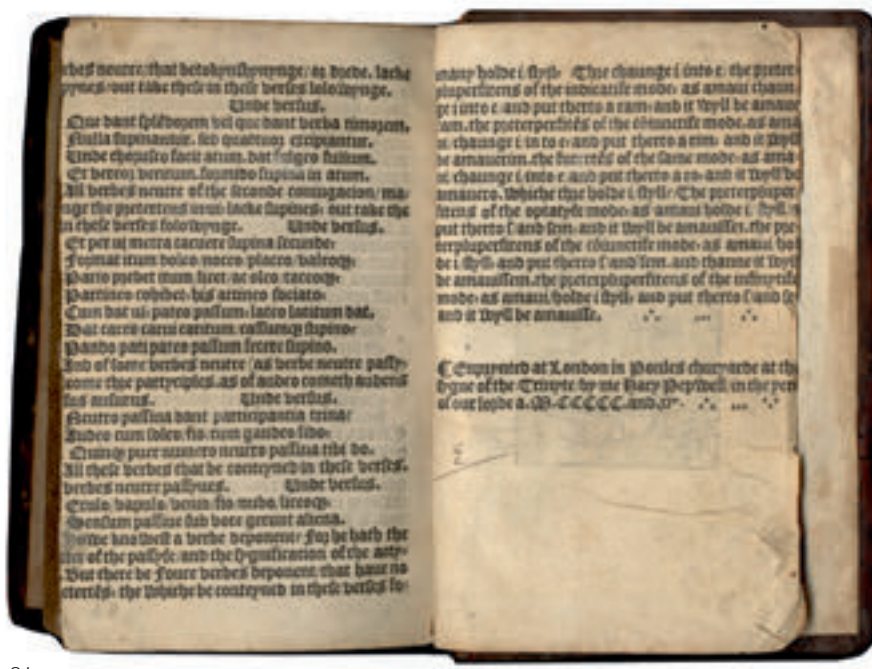 rbes neutre/that betokynshynynge/ or drede. lacke
pynes/out take these in these verses folowynge.
Unde versus.
Que dant splēdorem vel que dant verba timorem.
Nulla supinantur. sed quattuor excipiantur.
Unde efficisco facit atum. dat fulgeo fulsum.
Et vereor veritum. formido supina in atum.
All verbes neutre of the seconde coniugacion/ma-
nge the pretertens in ui: lacke supines: out take the
in these verses folowynge. Unde versus.
Et per ui metra tacuere supina secunde:
Format itum doleo/noceo placeo/valeoq;
Pareo prebet itum licet/ac oleo taceoq;
Pertineo cohibet/his attineo sociato:
Cum dat ui/pateo passum/lateo latitum dat.
Dat careo carui caritum/cassumq; supino:
Pando pati pateo passum fecere supino.
And of some verbes neutre/as verbe neutre passy-
come thre partyciples. as of audeo cometh audens
sus ausurus. Unde versus.
Neutro passiua dant participantia trina/
Audeo cum soleo/fio. cum gaudeo fido:
Quinq; puer numero neutro passiua tibi do.
All these verbes that be conteyned in these verses.
verbes neutre passyues. Unde versus.
Exulo/vapulo/veneo/fio nubo/liceoq;
Sensum passiue sub voce gerunt aliena.
Howe knowest a verbe deponent/ For he hath the
ter of the passyfe/and the sygnification of the acty-
. But there be Foure verbes deponent/that haue no
etertēs: the whiche be conteyned in these verses fo-
amauy holde i. styll: Thre chaunge i into e/the preter-
pluperfitens of the indicatife mode: as amaui chaun
ge i into e/and put therto a ram/and it wyll be amaue
ram. the preterperfitēs of the cōiunctife mode. as ama
ui chaunge i in to e/and put therto a rim/and it wyll
be amauerim. the futurtēs of the same mode: as ama
ui chaunge i into e. and put therto a ro/and it wyll be
amauero. Whiche thre holde i styll/The preterpluper-
fitens of the optatyfe mode: as amaui holde i. styll. &
put therto s/and sem. and it wyll be amauissem. the pre-
terpluperfitens of the cōiunctife mode: as amaui hol
de i styll/and put therto s/and sem. and thanne it wyll
be amauissem. the preterpluperfitens of the infinytife
mode: as amaui/holde i styll/and put therto s/and se
and it wyll be amauisse.
⁋ Enprynted at London in Poules chyrcyarde at the
sygne of the Trinyte by me Hary Pepwell/in the yere
of our lorde a. M.CCCCC.and